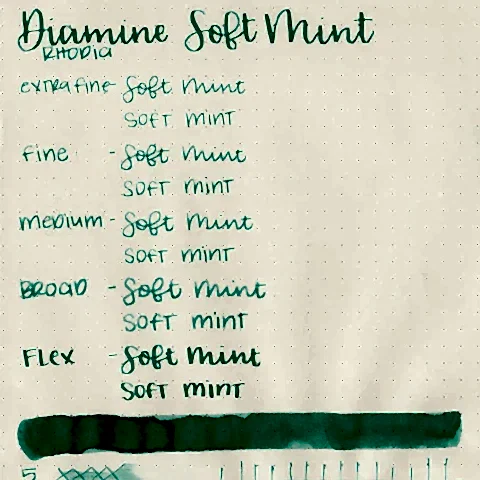 Diamine Soft Mint
RHODIA
extra fine - Soft Mint
SOFT MINT
Fine - Soft Mint
SOFT MINT
medium - Soft Mint
SOFT MINT
BROAD - Soft Mint
SOFT MINT
FLEX - Soft Mint
SOFT MINT
5